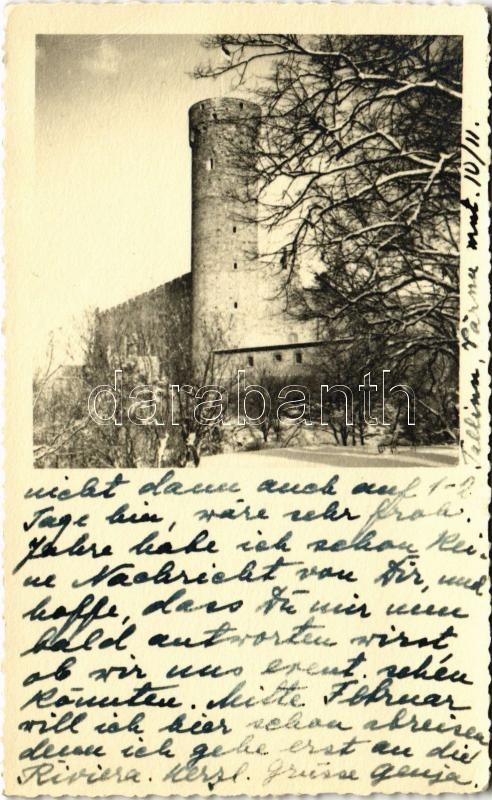 Tallinn, Pärnu mnt. 10/11.
darabanth
nicht dann auch auf 1-2
Tage hin, wäre sehr froh.
Jahre habe ich schon kei-
ne Nachricht von Dir, und
hoffe, dass Du mir nun
bald antworten wirst,
ob wir uns event. sehen
könnten. Mitte Februar
will ich hier schon abreisen
denn ich gehe erst an die
Riviera. Herzl. Grüsse Genja.